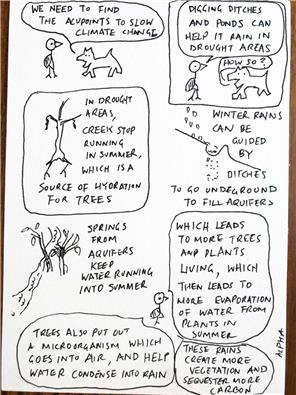 WE NEED TO FIND
THE ACUPOINTS TO SLOW
CLIMATE CHANGE
DIGGING DITCHES
AND PONDS CAN
HELP IT RAIN IN
DROUGHT AREAS
HOW SO?
IN DROUGHT
AREAS,
CREEK STOP
RUNNING
IN SUMMER,
WHICH IS A
SOURCE OF HYDRATION
FOR TREES
WINTER RAINS
CAN BE
GUIDED
BY
DITCHES
TO GO UNDEGROUND
TO FILL AQUIFERS
SPRINGS
FROM
AQUIFERS
KEEP
WATER RUNNING
INTO SUMMER
WHICH LEADS
TO MORE TREES
AND PLANTS
LIVING, WHICH
THEN LEADS TO
MORE EVAPORATION
OF WATER FROM
PLANTS IN
SUMMER
TREES ALSO PUT OUT
A MICROORGANISM WHICH
GOES INTO AIR, AND HELP
WATER CONDENSE INTO RAIN
THESE RAINS
CREATE MORE
VEGETATION AND
SEQUESTER MORE
CARBON
ALPHA